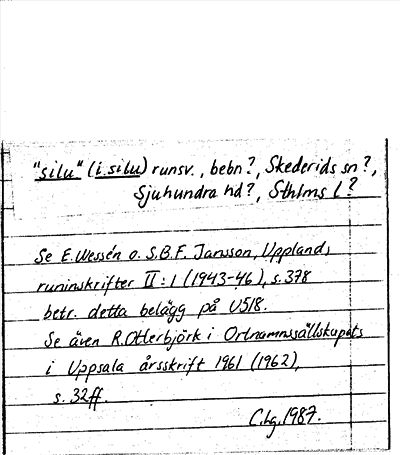 "silu" (i silu) runsv., bebn?, Skederids sn?,
Sjuhundra hd?, Sthlms l?
Se E. Wessén o. S.B.F. Jansson, Upplands
runinskrifter II:1 (1943-46), s. 378
betr. detta belägg på U518.
Se även R. Otterbjörk i Ortnamnssällskapets
i Uppsala årsskrift 1961 (1962),
s. 32ff.
C. Lg. 1987.